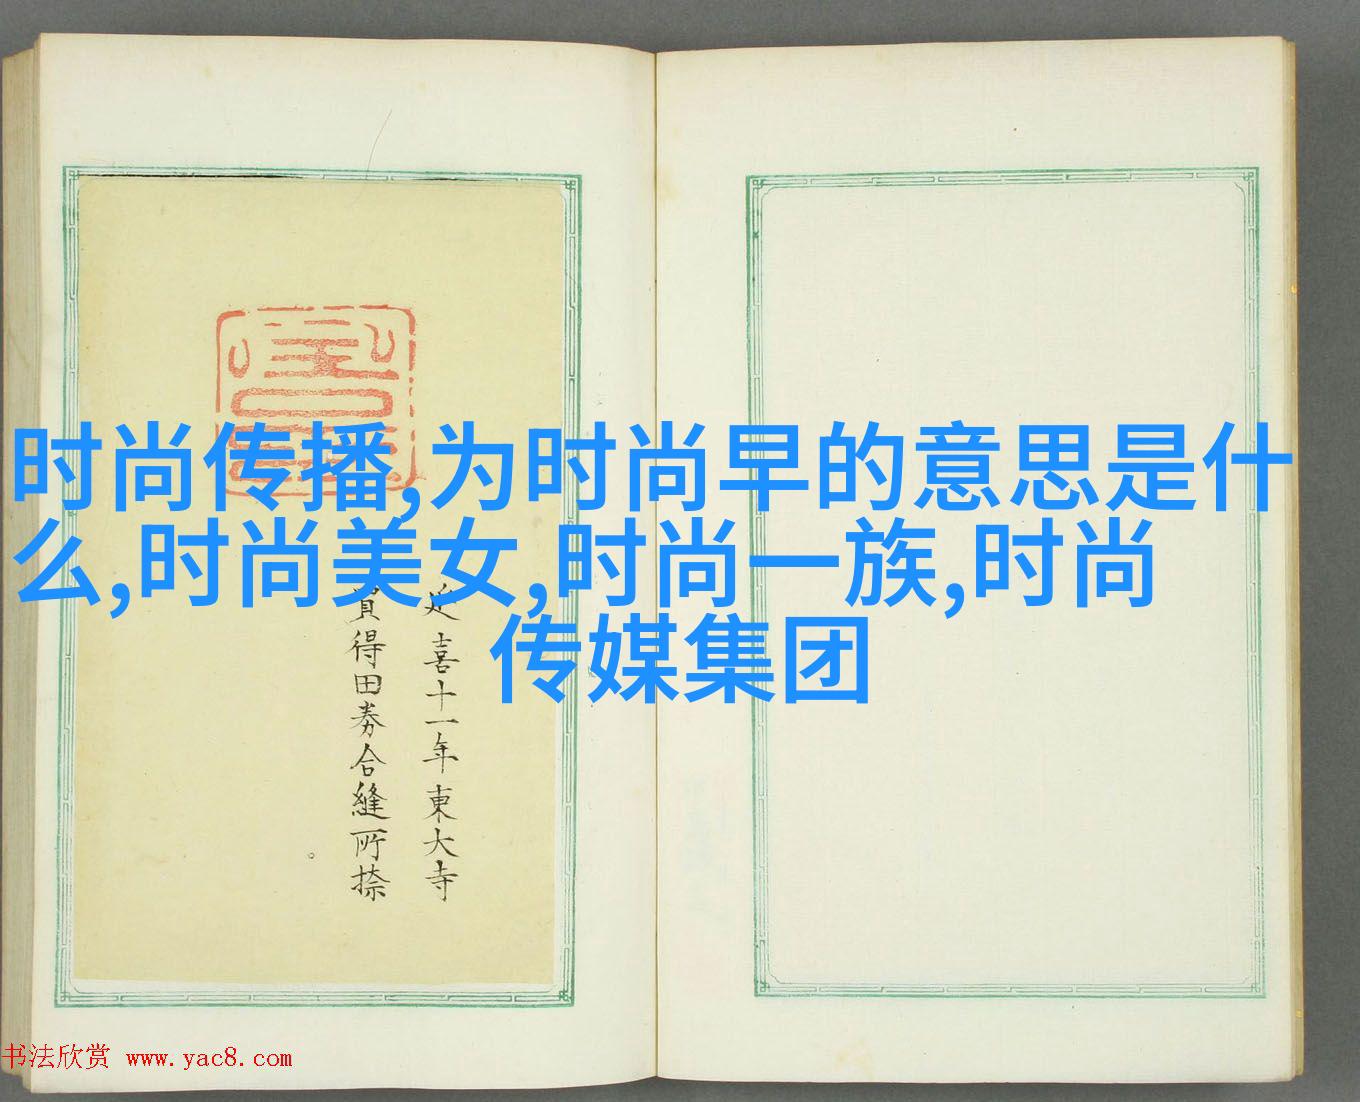 时尚传播,为时尚早的意思是什
么,时尚美女,时尚一族,时尚
传媒集团
延喜十一年東大寺
買得田券合縫所捺
书法欣赏 www.yac8.com